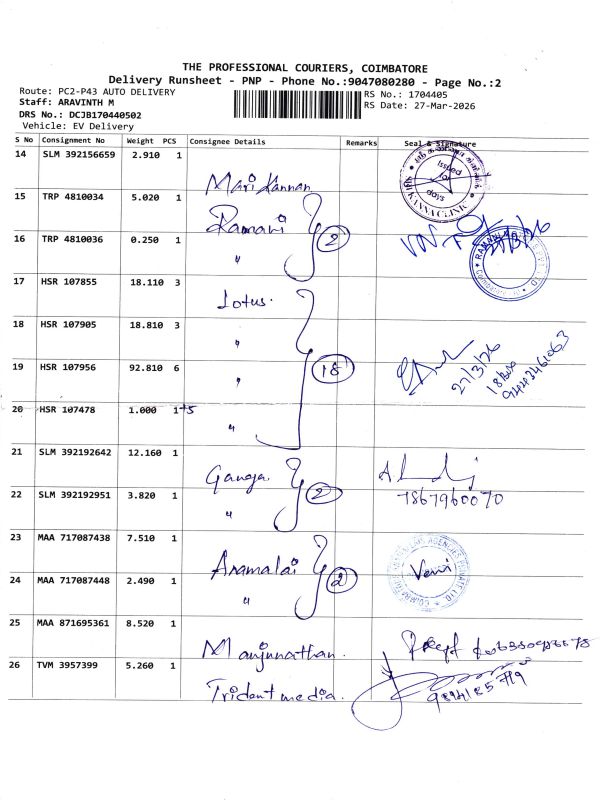 THE PROFESSIONAL COURIERS, COIMBATORE
Delivery Runsheet - PNP - Phone No.:9047080280 - Page No.:2
Route: PC2-P43 AUTO DELIVERY
Staff: ARAVINTH M
DRS No.: DCJB170440502
Vehicle: EV Delivery
RS No.: 1704405
RS Date: 27-Mar-2026
S No Consignment No Weight PCS Consignee Details Remarks Seal & Signature
14 SLM 392156659 2.910 1 Mari Kannan
Issued for
days
KANNA CLINIC
15 TRP 4810034 5.020 1 Ramani
16 TRP 4810036 0.250 1 " 2
17 HSR 107855 18.110 3 Lotus
18 HSR 107905 18.810 3 "
19 HSR 107956 92.810 6 " 18
27/3/26
18 box
20 HSR 107478 1.000 1+5 "
21 SLM 392192642 12.160 1 Ganga
22 SLM 392192951 3.820 1 " 2
7867960070
23 MAA 717087438 7.510 1 Aramalai
24 MAA 717087448 2.490 1 " 2
Veni
25 MAA 871695361 8.520 1 Manjunathan
26 TVM 3957399 5.260 1 Trident media